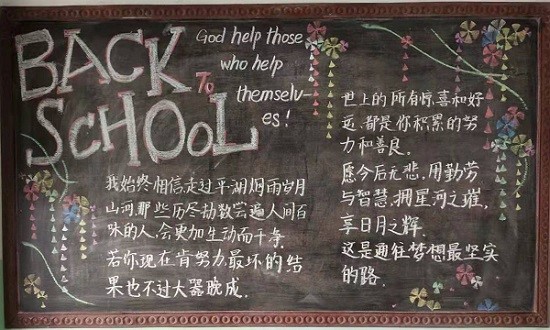 BACK
To
SCHOOL
God help those
who help
themselv-
es!
我始终相信走过平湖烟雨岁月
山河那些历尽劫数尝遍人间百
味的人,会更加生动而干净.
若你现在肯努力最坏的结
果也不过大器晚成.
世上的所有惊喜和好
运,都是你积累的努
力和善良。
愿今后无悲,用勤劳
与智慧,拥星河之璀,
享日月之辉.
这是通往梦想最坚实
的路.